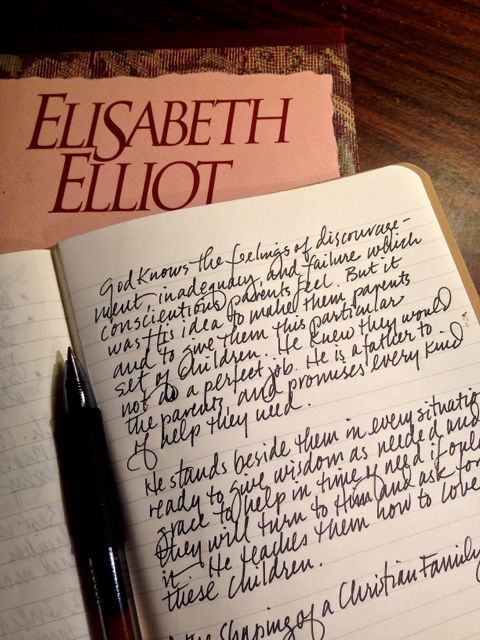 ELISABETH
ELLIOT
God knows the feelings of discourage-
ment, inadequacy, and failure which
conscientious parents feel. But it
was His idea to make them parents
and to give them this particular
set of children. He knew they would
not do a perfect job. He is a father to
the parents, and promises every kind
of help they need.
He stands beside them in every situatio
ready to give wisdom as needed and
grace to help in time of need if only
they will turn to Him and ask for
it. He teaches them how to love
these children.
the Shaping of a Christian Family